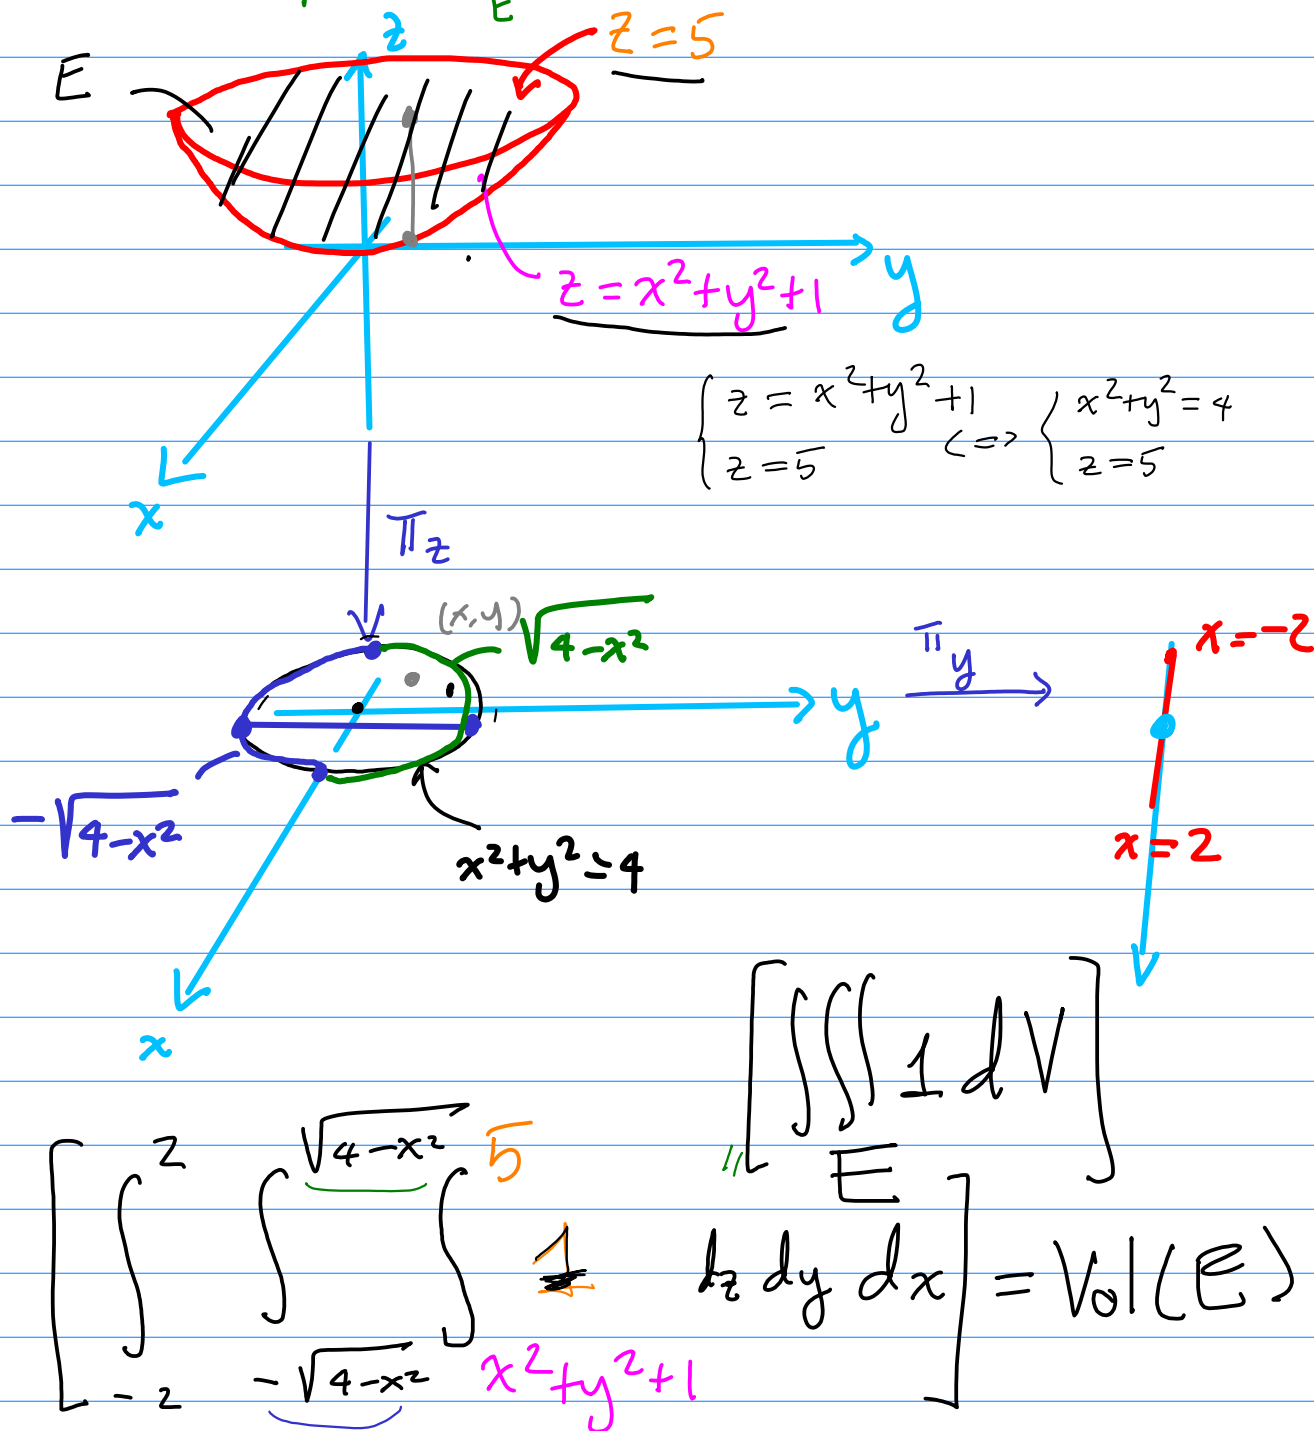 E
z
z = 5
E
z = x²+y²+1
y
{ z = x²+y²+1 <=> { x²+y² = 4
z = 5 z = 5
x
π_z
(x,y) √(4-x²)
π_y
x = -2
y
-√(4-x²)
x²+y² = 4
x = 2
x
[ ∭_E 1 dV ]
"
[ ∫_{-2}^{2} ∫_{-√(4-x²)}^{√(4-x²)} ∫_{x²+y²+1}^{5} 1 dz dy dx ] = Vol(E)